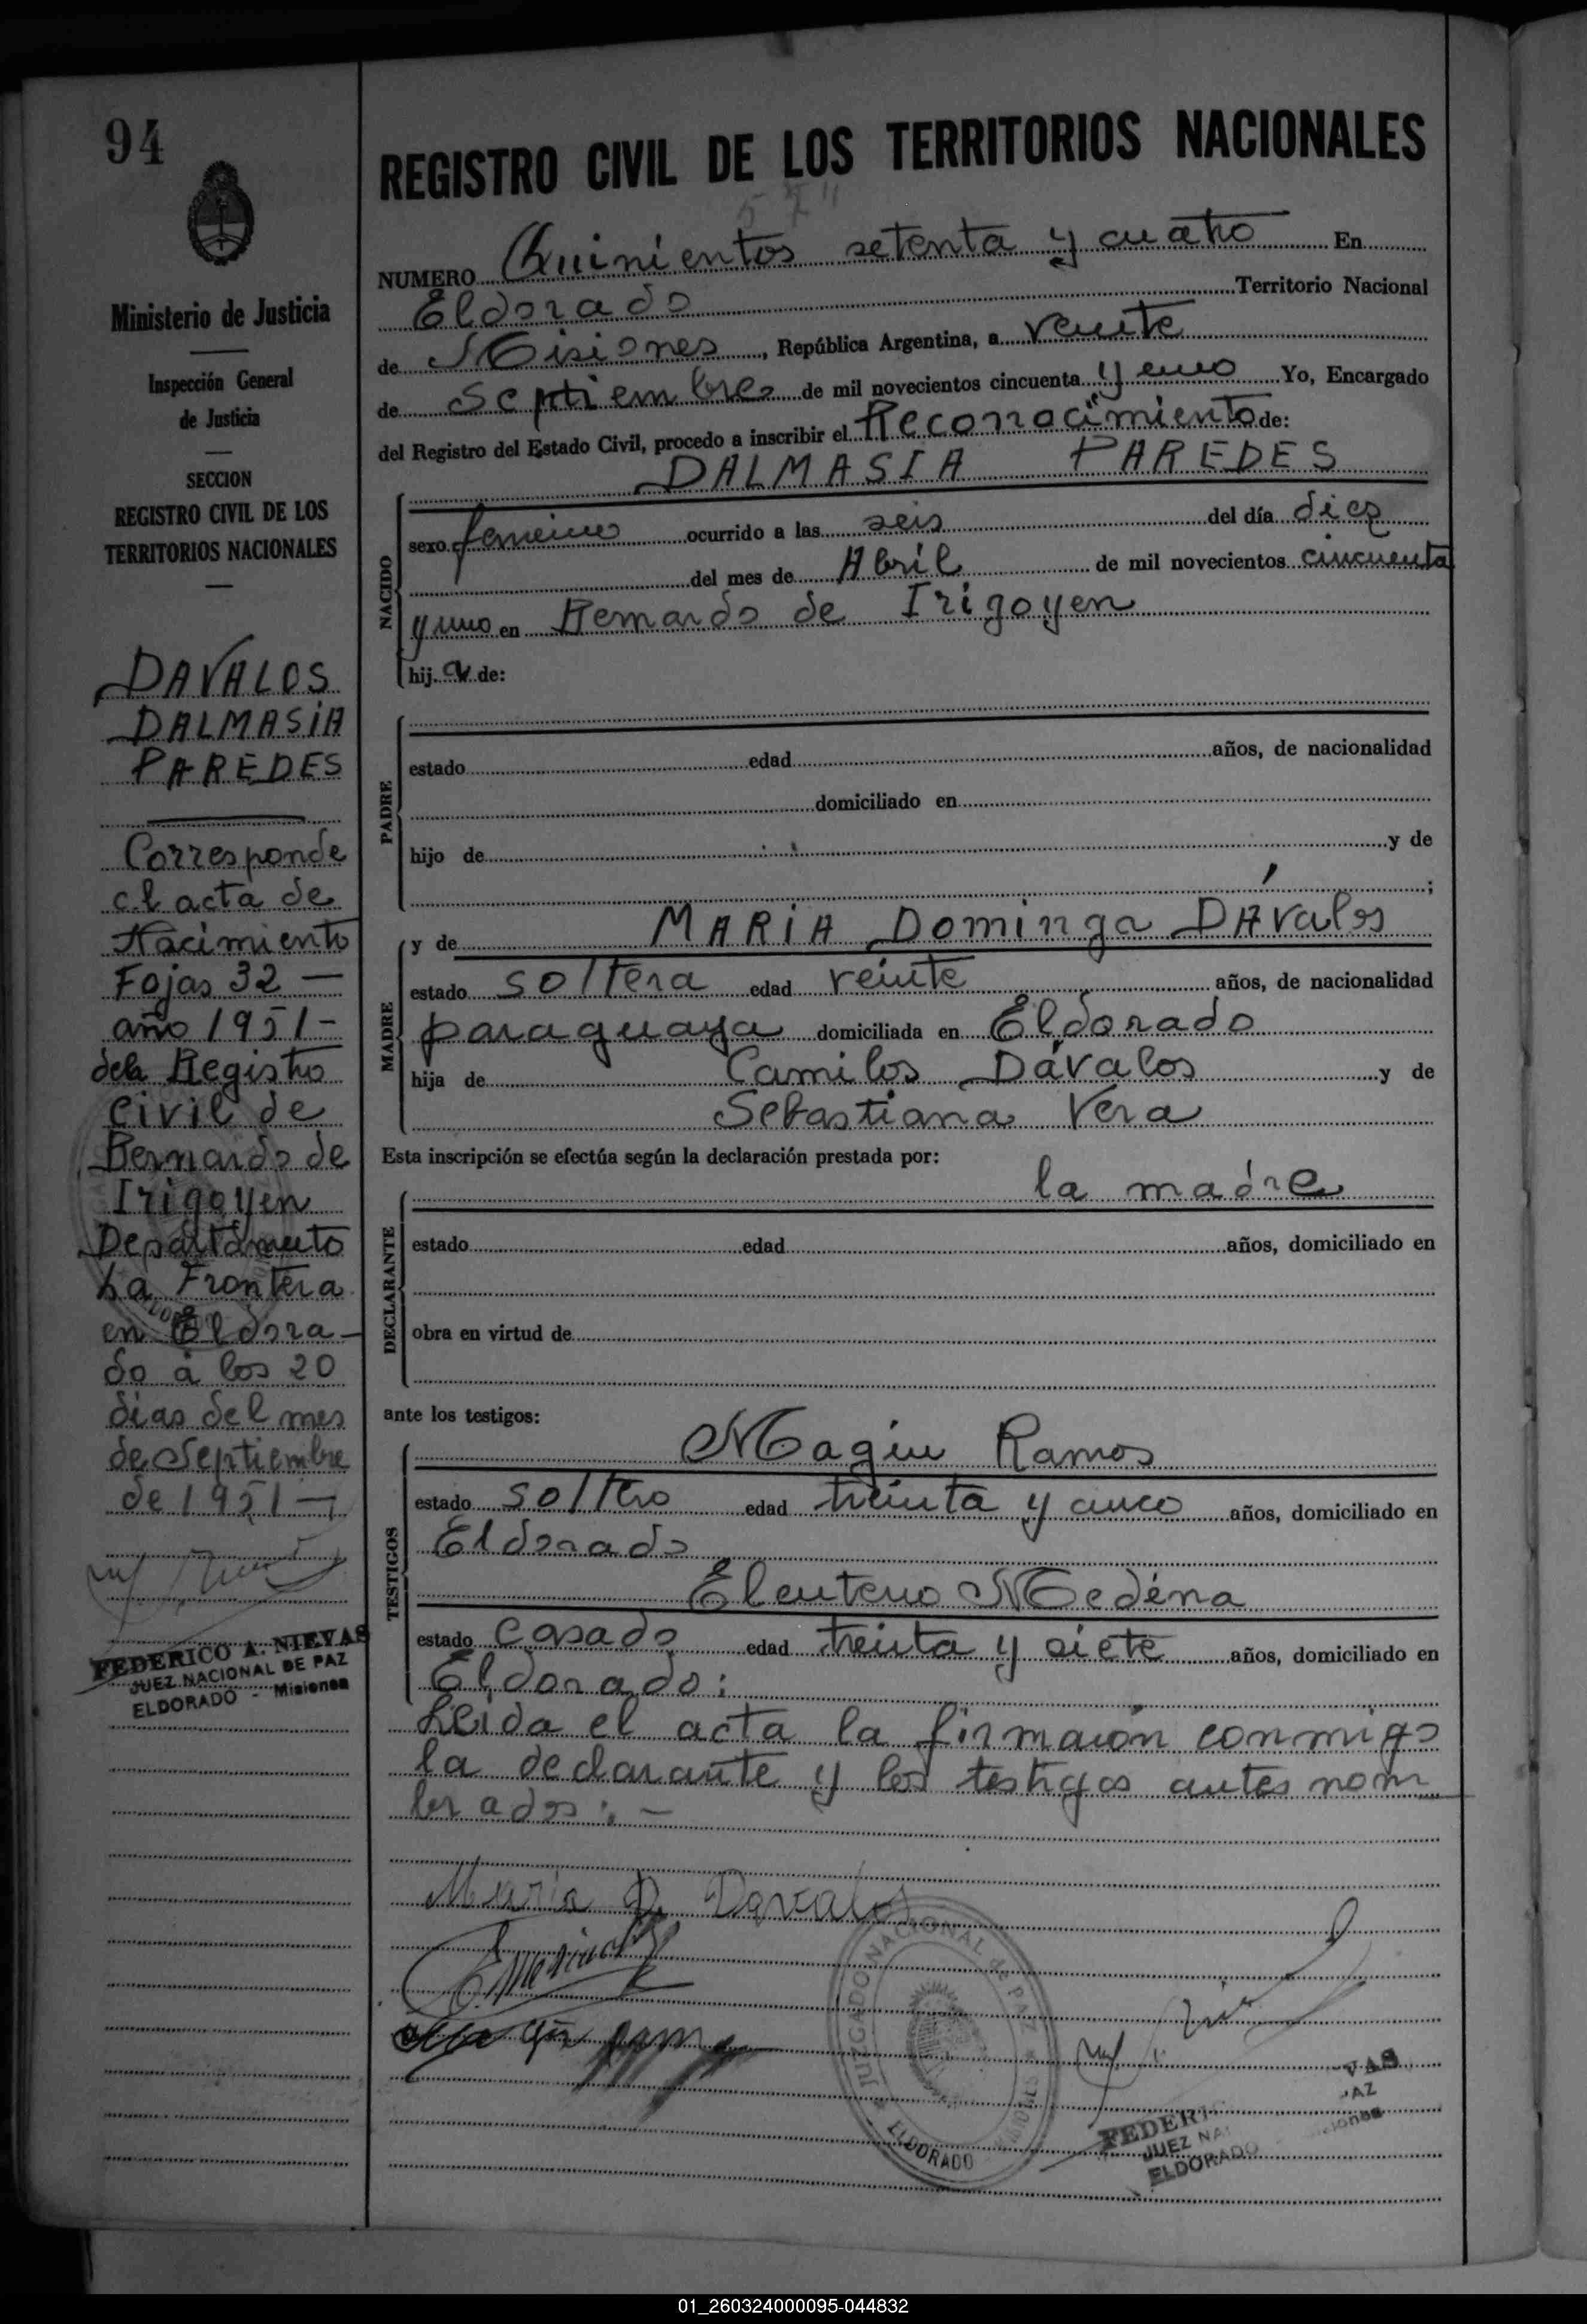 94
Ministerio de Justicia
Inspección General
de Justicia
SECCION
REGISTRO CIVIL DE LOS
TERRITORIOS NACIONALES
DAVALOS
DALMASIA
PAREDES
Corresponde
el acta de
Nacimiento
Fojas 32 —
año 1951 -
del Registro
Civil de
Bernardo de
Irigoyen
Departamento
La Frontera
en Eldora-
do a los 20
dias del mes
de Septiembre
de 1951 -
FEDERICO A. NIEVAS
JUEZ NACIONAL DE PAZ
ELDORADO - Misiones
REGISTRO CIVIL DE LOS TERRITORIOS NACIONALES
NUMERO Quinientos setenta y cuatro En
Eldorado Territorio Nacional
de Misiones, República Argentina, a veinte
de Septiembre de mil novecientos cincuenta y uno Yo, Encargado
del Registro del Estado Civil, procedo a inscribir el Reconocimiento de:
DALMASIA PAREDES
NACIDO
sexo femenino ocurrido a las seis del día diez
del mes de Abril de mil novecientos cincuenta
y uno en Bernardo de Irigoyen
hij a de:
PADRE
estado edad años, de nacionalidad
domiciliado en
hijo de y de
;
MADRE
y de MARIA Dominga DÁvalos
estado soltera edad veinte años, de nacionalidad
paraguaya domiciliada en Eldorado
hija de Camilos Dávalos y de
Sebastiana Vera
Esta inscripción se efectúa según la declaración prestada por:
la madre
DECLARANTE
estado edad años, domiciliado en
obra en virtud de
ante los testigos:
TESTIGOS
Magin Ramos
estado soltero edad treinta y cinco años, domiciliado en
Eldorado
Eleuterio Medina
estado casado edad treinta y siete años, domiciliado en
Eldorado:
Leida el acta la firmaron conmigo
la declarante y los testigos antes nom
brados: -
Maria D. Davalos
E. Medina
Magin Ramos
JUZGADO NACIONAL de PAZ
ELDORADO
FEDERI VAS
JUEZ NA AZ
ELDORADO iones
01_260324000095-044832